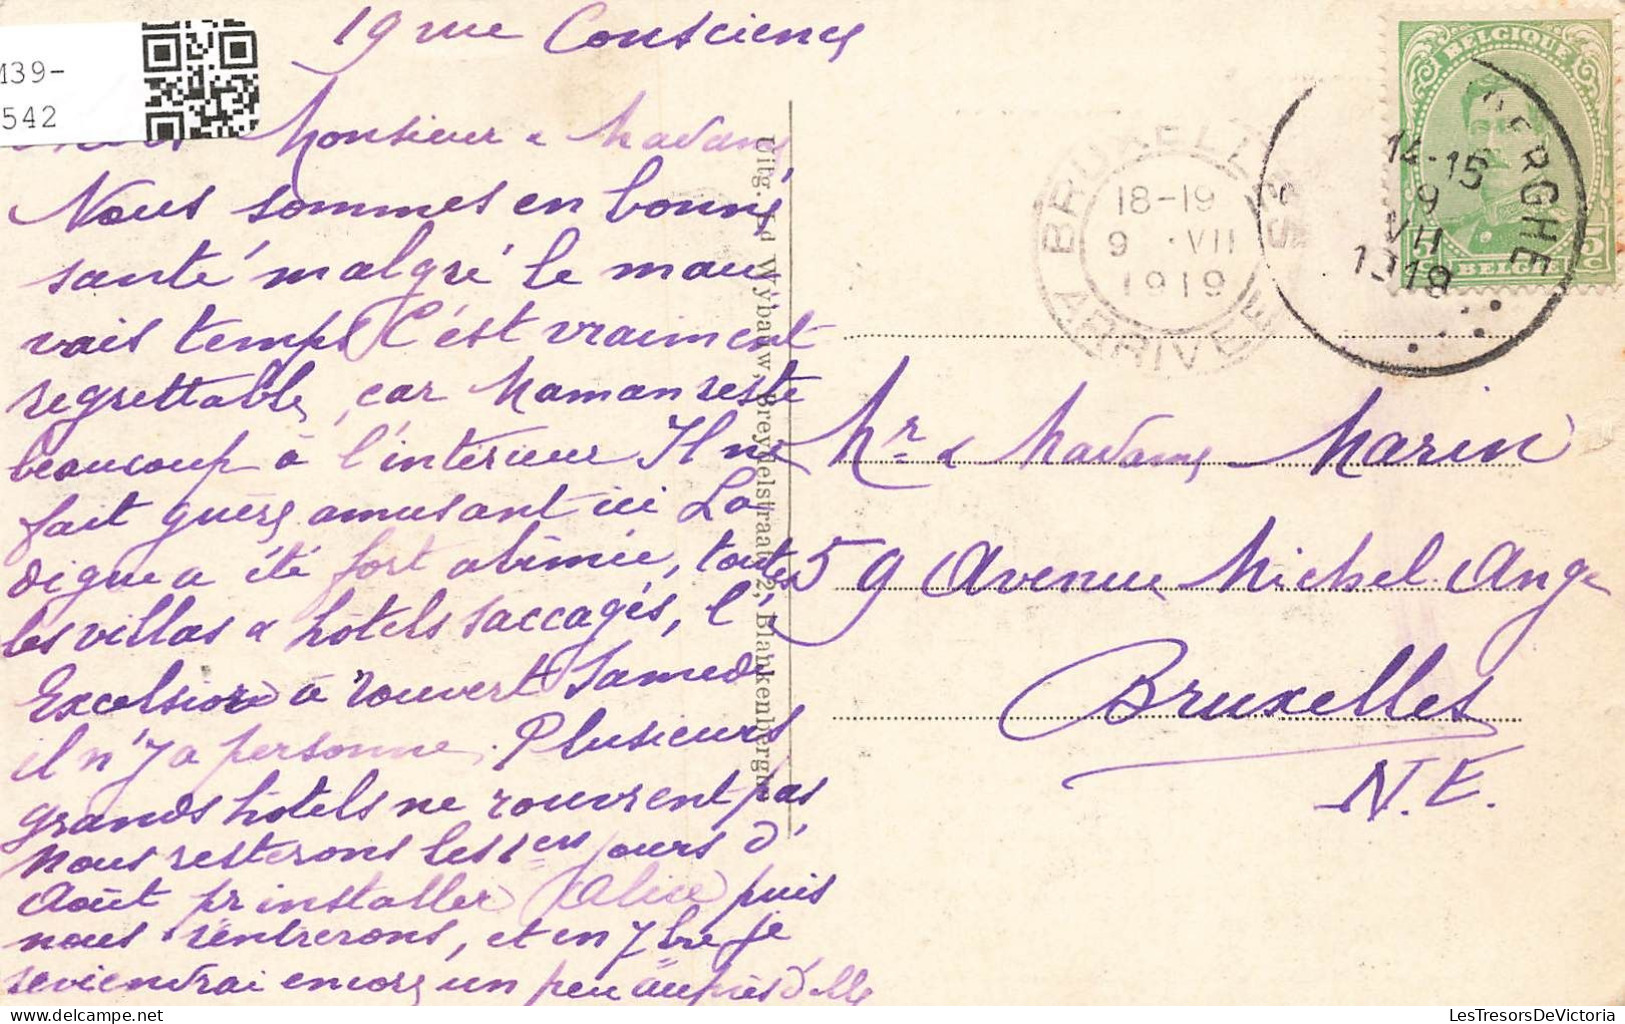 19 rue Conscience
M39-
542
Monsieur & Madame
Nous sommes en bonne
santé malgré le mau
vais temps C'est vraiment
regrettable, car Maman reste
beaucoup à l'intérieur Il ne
fait guère amusant ici La
digue a été fort abimée, toutes
les villas & hôtels saccagés, l'
Excelsior à rouvert Samedi
il n'y a personne. Plusieurs
grands hôtels ne rouvrent pas
Nous resterons les 1ers jours d'
Août pr installer Alice puis
nous rentrerons, et en 7bre je
reviendrai encore un peu auprès d'elle
Uitg. Ed Wybauw, Breydelstraat, 2, Blankenberghe
BRUXELLES
18-19
9 VII
1919
ARRIVEE
BELGIQUE
BELGIË
5c
ERGHE
14-15
9
VII
1919
Mr & Madame Marin
59 Avenue Michel Ange
Bruxelles
N.E.
LesTresorsDeVictoria.com